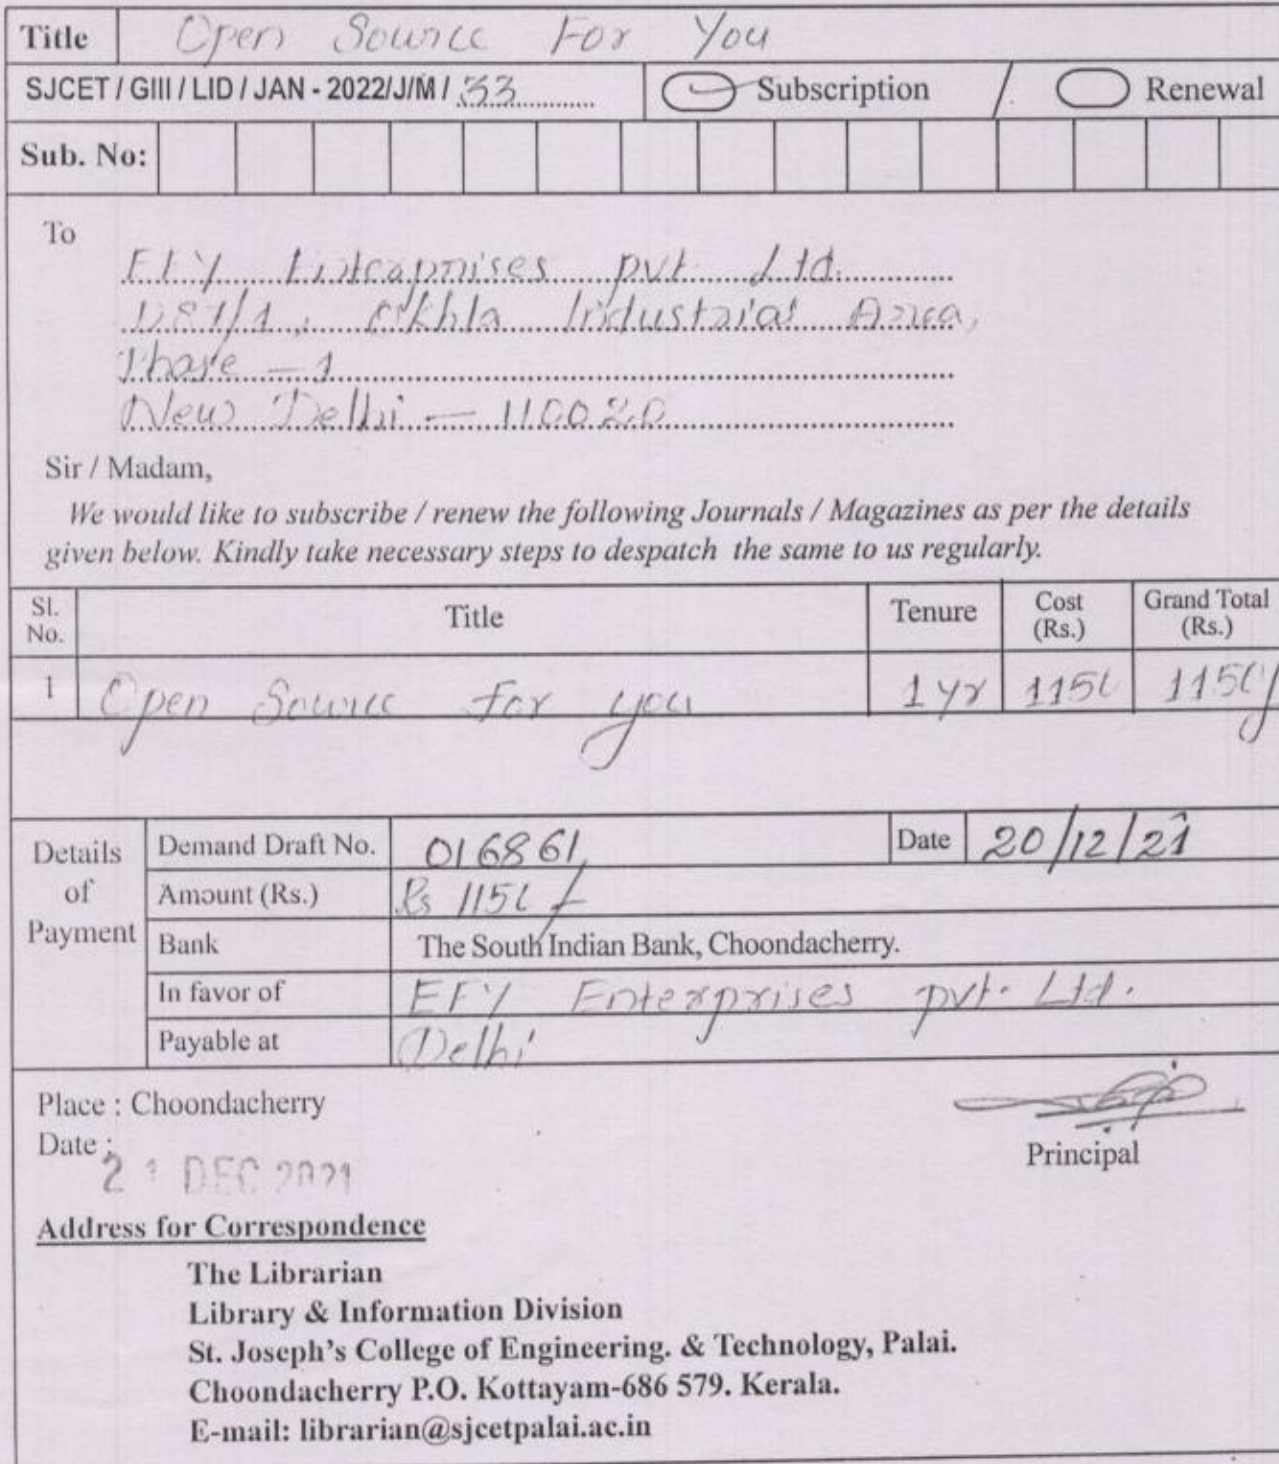 Title Open Source For You
SJCET / GIII / LID / JAN - 2022/J/M / 33
Subscription / Renewal
Sub. No:
To
EFY Enterprises pvt Ltd.
D87/1, Okhla Industrial Area,
Phase - 1
New Delhi - 110020
Sir / Madam,
We would like to subscribe / renew the following Journals / Magazines as per the details
given below. Kindly take necessary steps to despatch the same to us regularly.
Sl. No. Title Tenure Cost (Rs.) Grand Total (Rs.)
1 Open Source for you 1 yr 1150 1150/
Details of Payment
Demand Draft No. 016861 Date 20/12/21
Amount (Rs.) Rs 1150/-
Bank The South Indian Bank, Choondacherry.
In favor of EFY Enterprises pvt. Ltd.
Payable at Delhi
Place : Choondacherry
Date : 21 DEC 2021
Principal
Address for Correspondence
The Librarian
Library & Information Division
St. Joseph's College of Engineering. & Technology, Palai.
Choondacherry P.O. Kottayam-686 579. Kerala.
E-mail: librarian@sjcetpalai.ac.in